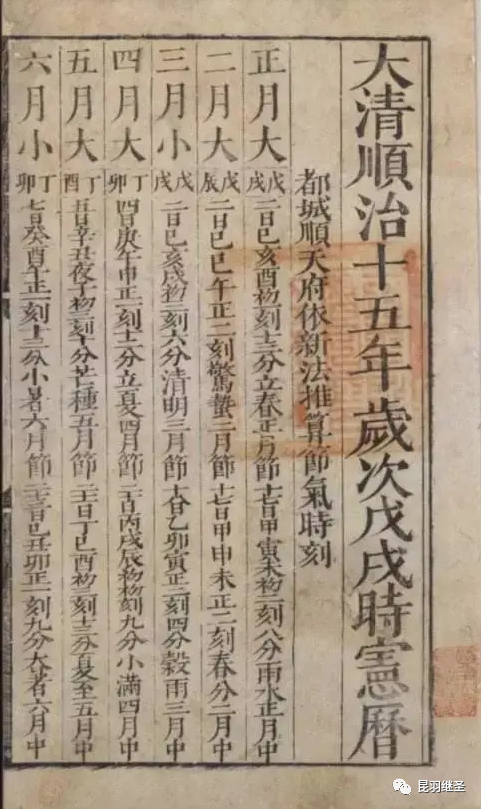 大清順治十五年歲次戊戌時憲曆
都城順天府依新法推算節氣時刻
正月大 戊戌 二日己亥酉初二刻十三分立春正月節 十七日甲寅未初二刻八分雨水正月中
二月大 戊辰 二日己巳午正二刻驚蟄二月節 十七日甲申未正二刻春分二月中
三月小 戊戌 二日己亥戌初二刻六分清明三月節 十八日乙卯寅正二刻四分穀雨三月中
四月大 丁卯 四日庚午申正一刻十二分立夏四月節 二十日丙戌辰初初刻九分小滿四月中
五月大 丁酉 五日辛丑夜子初三刻十分芒種五月節 二十一日丁巳酉初三刻十三分夏至五月中
六月小 丁卯 七日癸酉午正一刻十三分小暑六月節 二十三日己丑卯正一刻九分大暑六月中
昆羽继圣